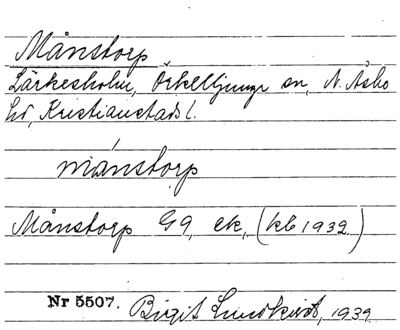 Månstorp
Lärkesholm, Örkelljunga sn, N. Åsbo
hd, Kristianstads l.
månstorp
Månstorp G9, ek, (kb 1932)
Nr 5507. Birgit Lundkvist, 1939